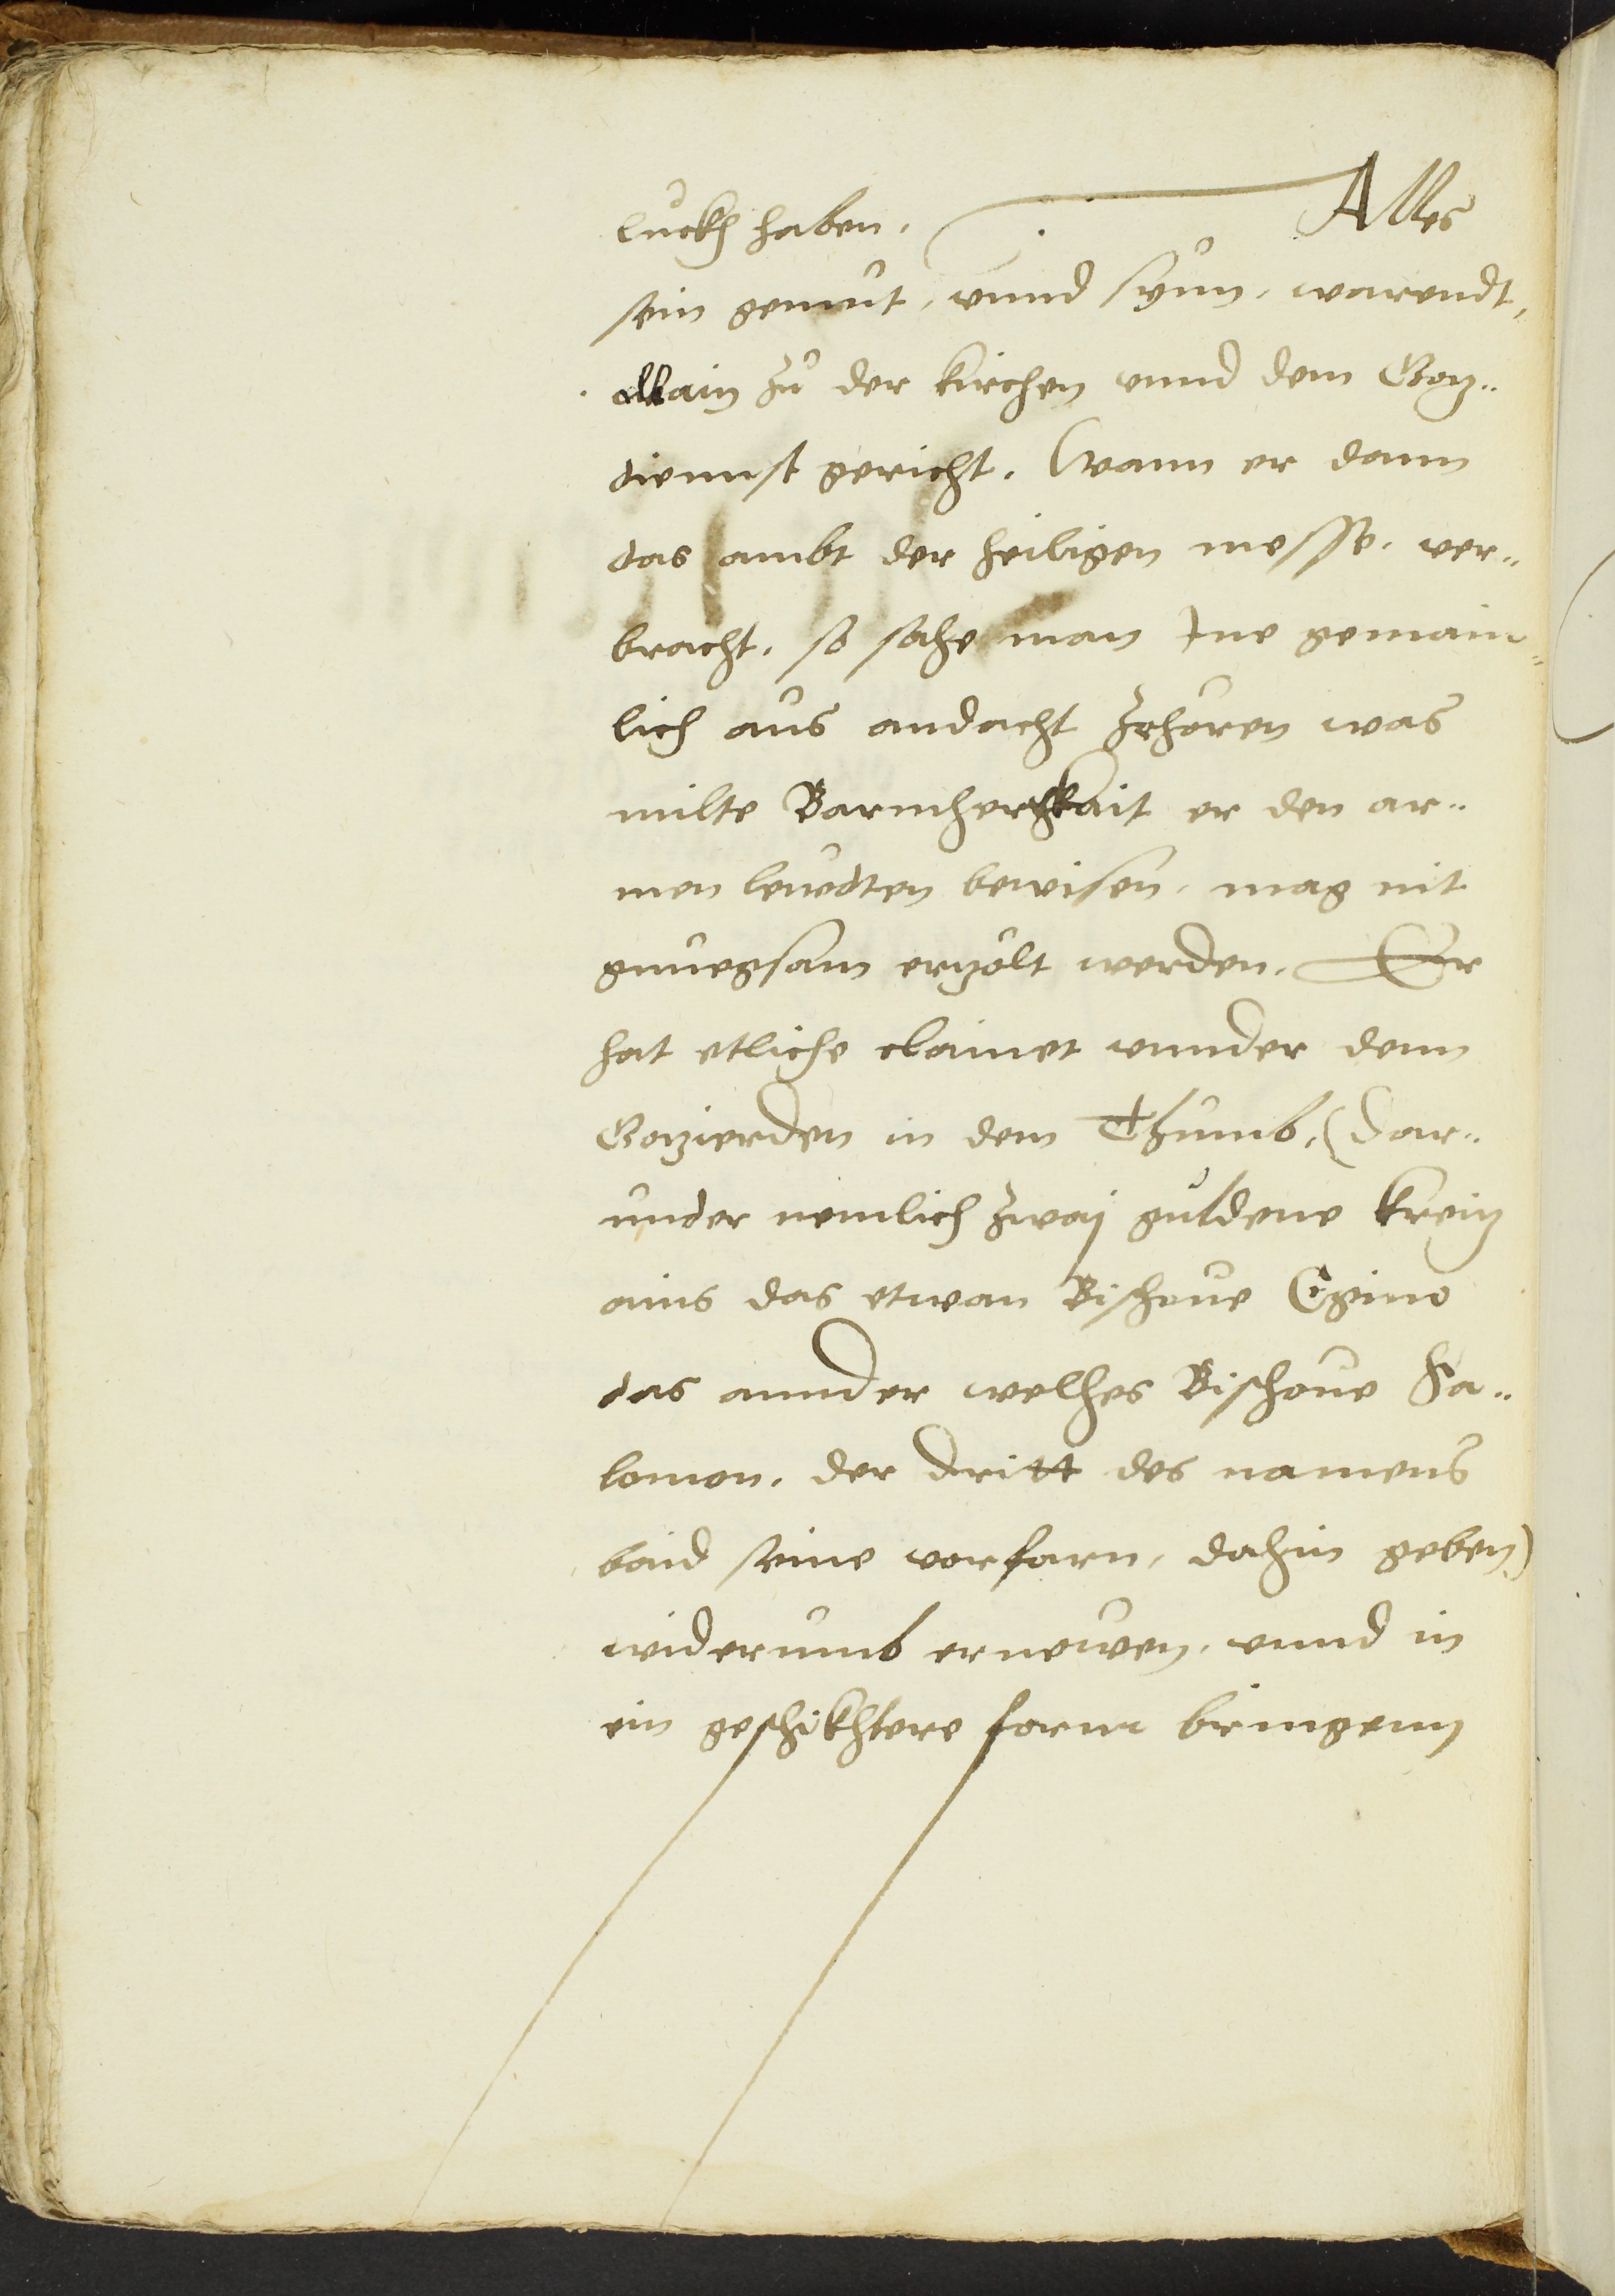 luckh haben. Alles
sein gemut, vnnd synn, warendt,
allain zů der kirchen vnnd dem Gotz„
diennst gericht. Wann er dann
das ambt der heiligen messe, ver„
bracht, so sahe man Ine gemain„
lich aus andacht zehören was
milte Barmhertzkait er den ar„
men leuedten bewisen, mag nit
gnuegsam erzölt werden. Er
hat etliche clainet vnnder denn
Gotzierden in dem Thumb, (dar„
under nemlich zwaj guldene kreitz
ains das etwan Bischoue Egino
das annder welhes Bischoue Sa„
lomon, der dritt des namens
baid seine vorfarn, dahin geben)
widerumb ernewen, vnnd in
ein geschikhtere form bringenn